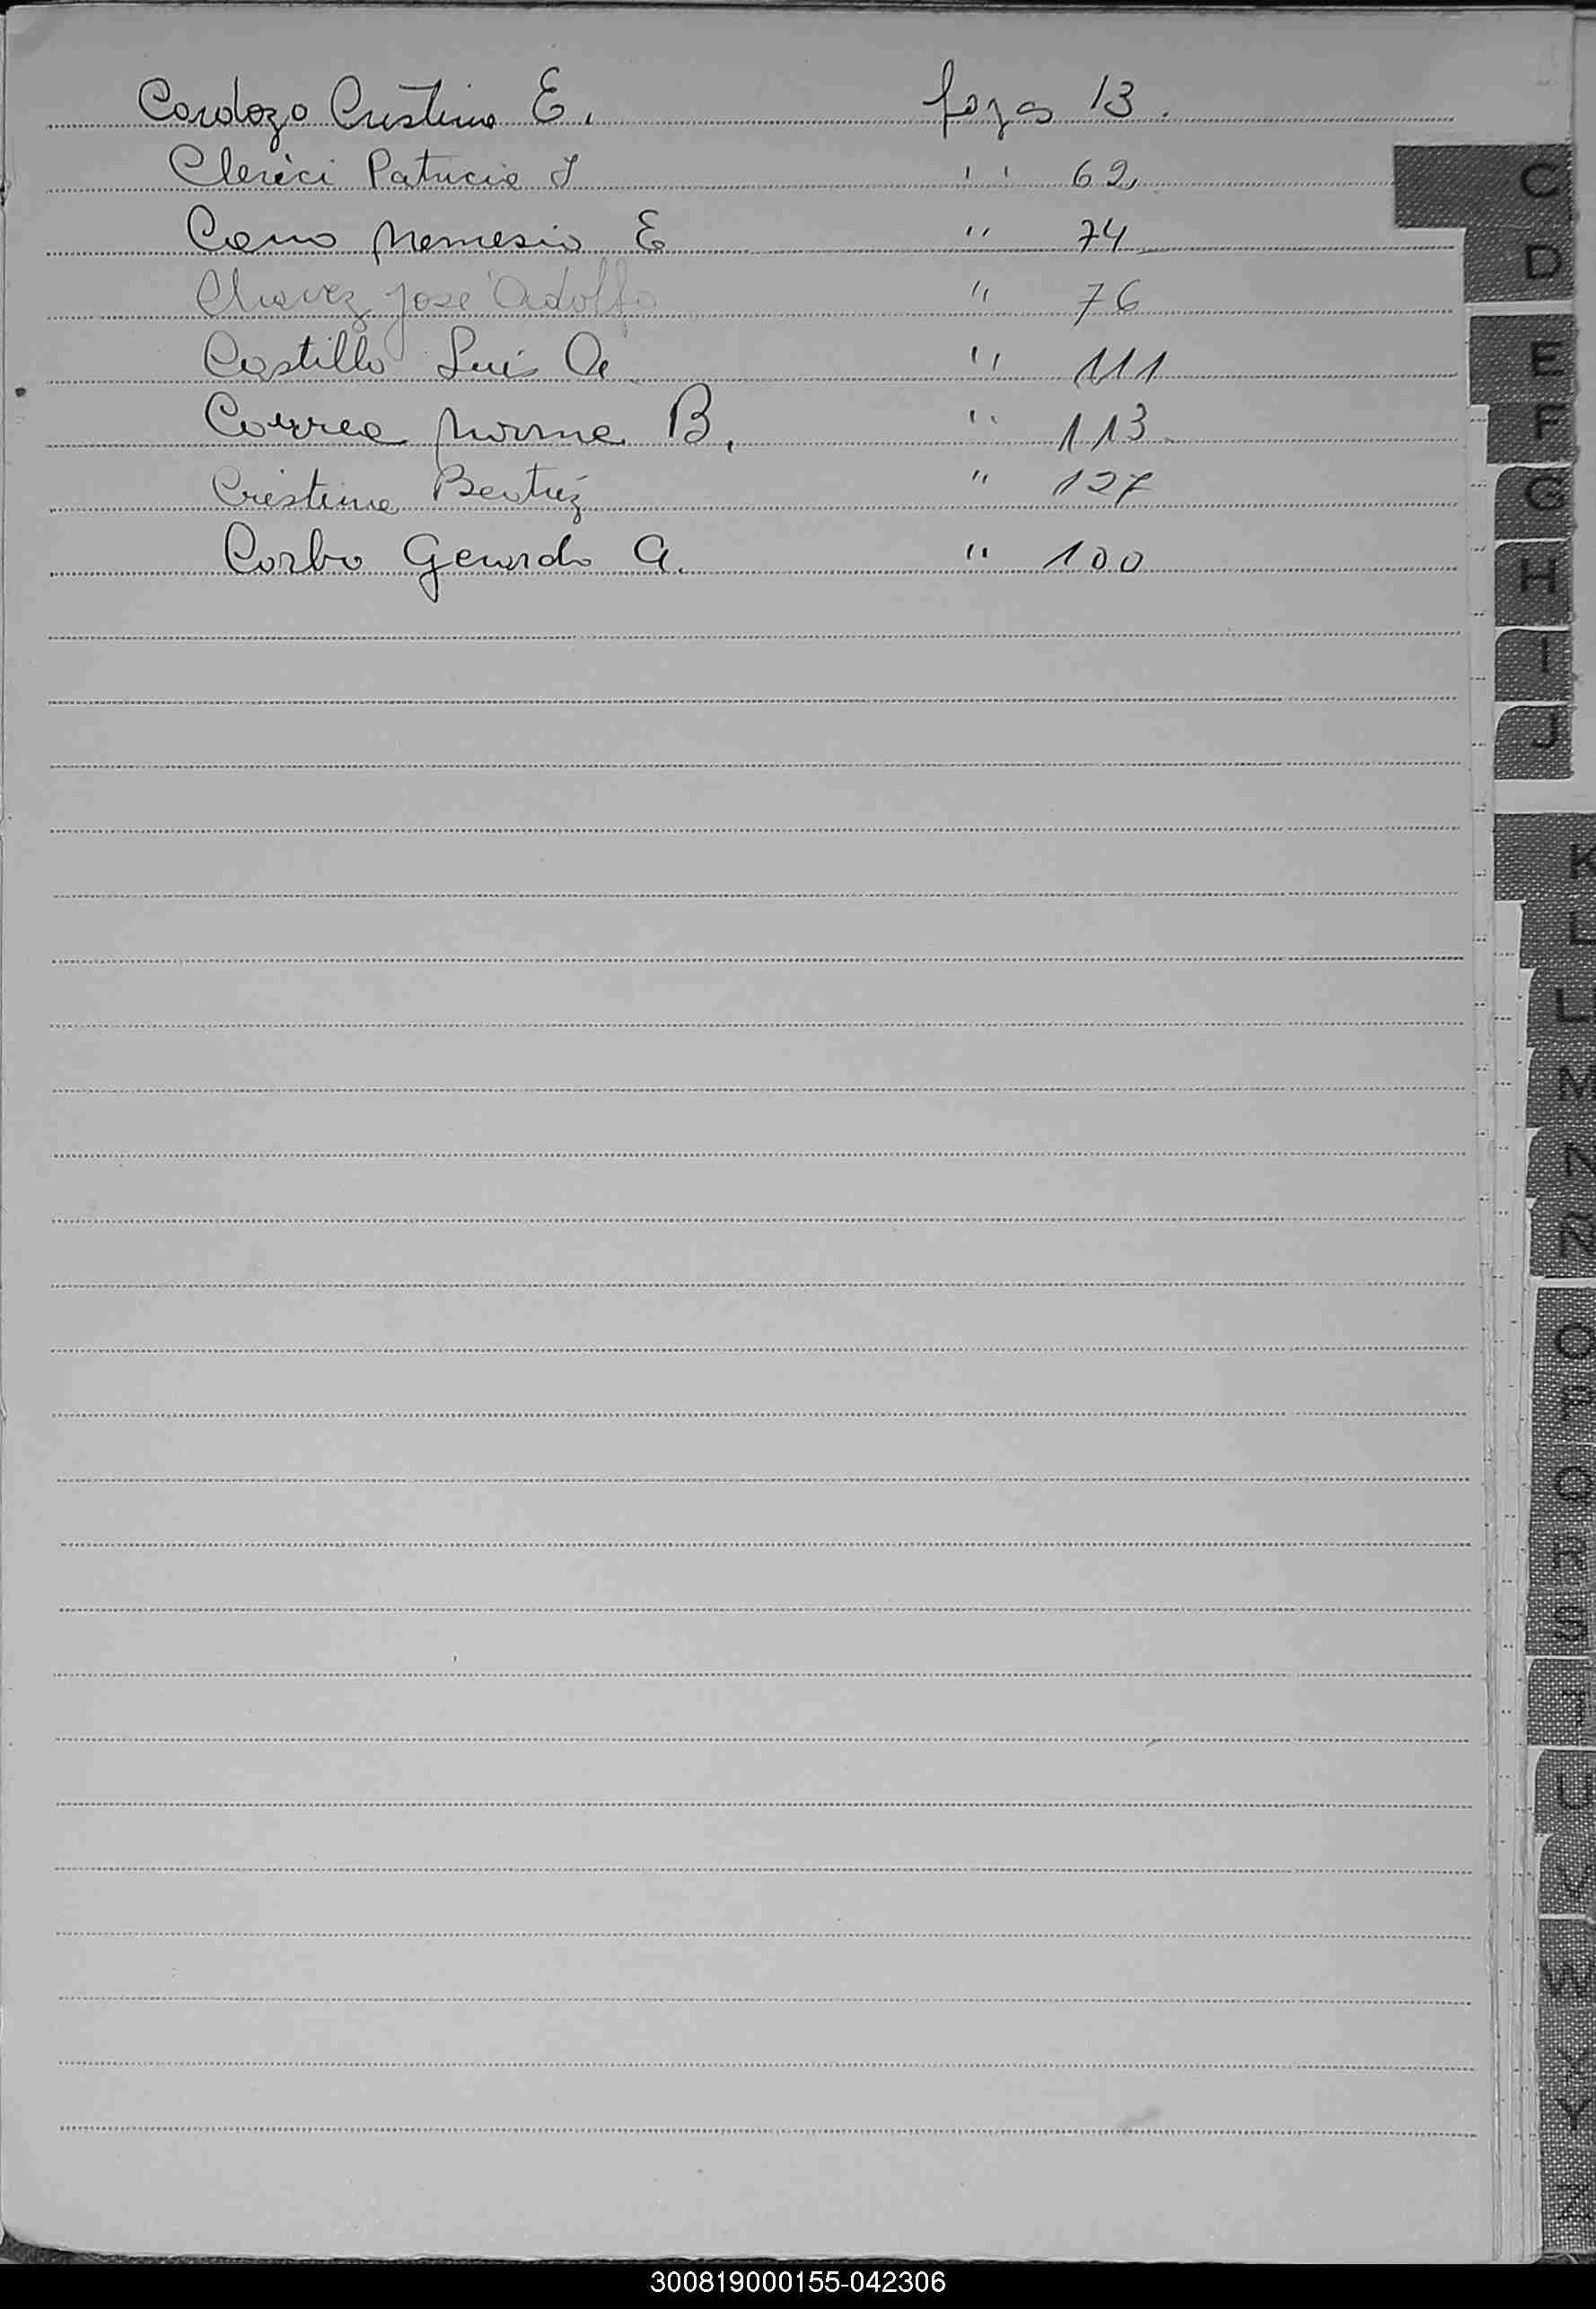 Cardozo Cristina E. fojas 13.
Clerici Patricia I '' 62
Cano Nemesio E " 74
Chavez José Adolfo " 76
Castillo Luis A '' 111
Correa Norma B. '' 113
Cristina Beatriz " 127
Corbo Gerardo A. " 100
C
D
E
F
G
H
I
J
K
L
LL
M
N
Ñ
O
P
Q
R
S
T
U
V
W
X
Y
Z
300819000155-042306